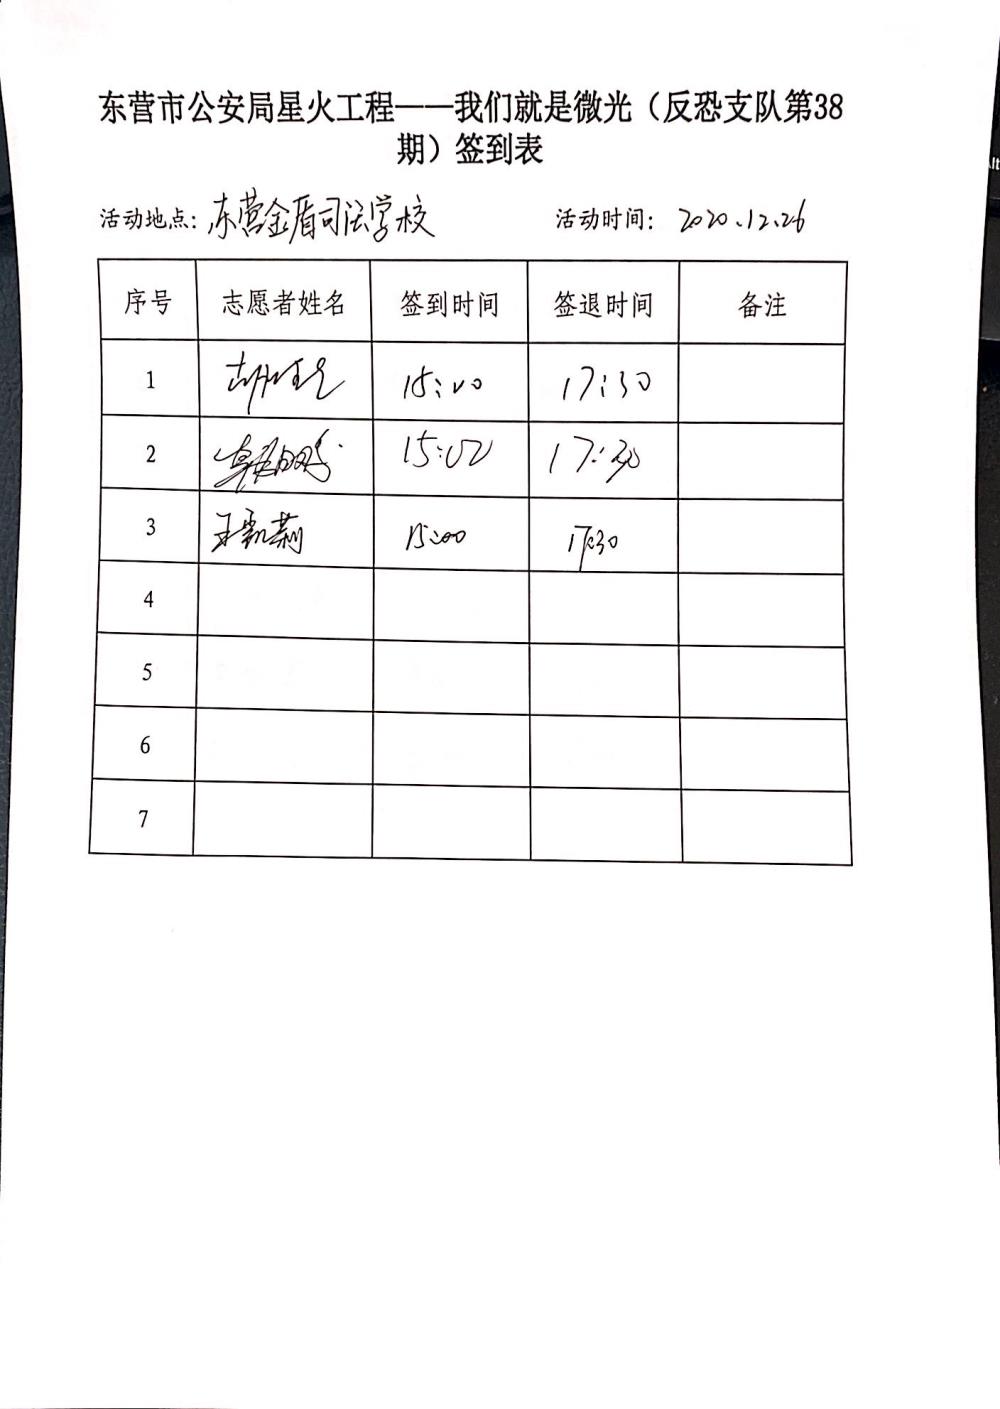 东营市公安局星火工程——我们就是微光（反恐支队第38
期）签到表
活动地点：东营金盾司法学校 活动时间：2020.12.26
序号 志愿者姓名 签到时间 签退时间 备注
1 15:00 17:30
2 15:02 17:30
3 王凯莉 15:00 17:30
4
5
6
7